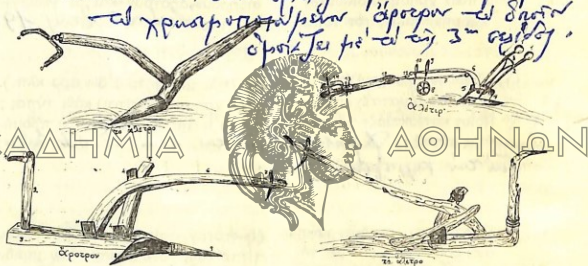 τὸ χρησιμοποιούμενον ἄροτρον τὸ ὁποῖον
ὁμοιάζει μὲ τὸ τῆς 3ης σελίδος.
το ἄλετρο
ΑΔΗΜΙΑ ΑΘΗΝΩΝ
ἄροτρον
τὸ ἄλετρο